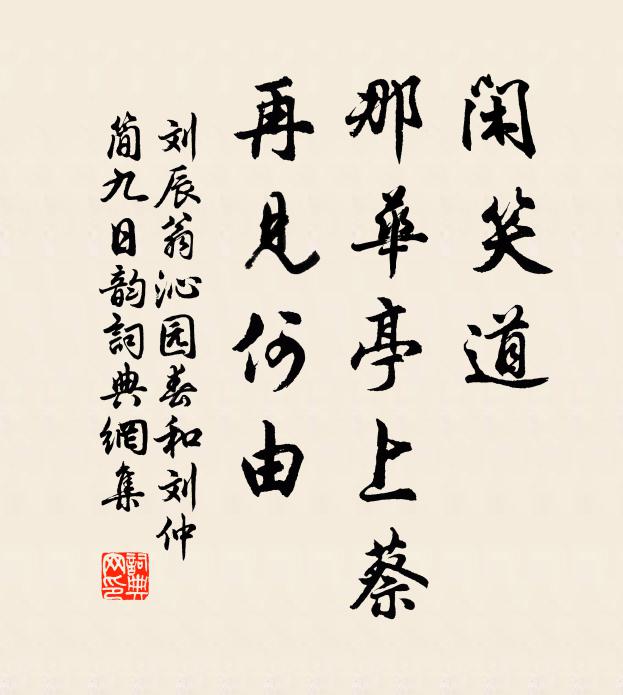 闲笑道
那华亭上蔡
再见何由
刘辰翁沁园春和刘仲
简九日韵詞典網集
詞典网印